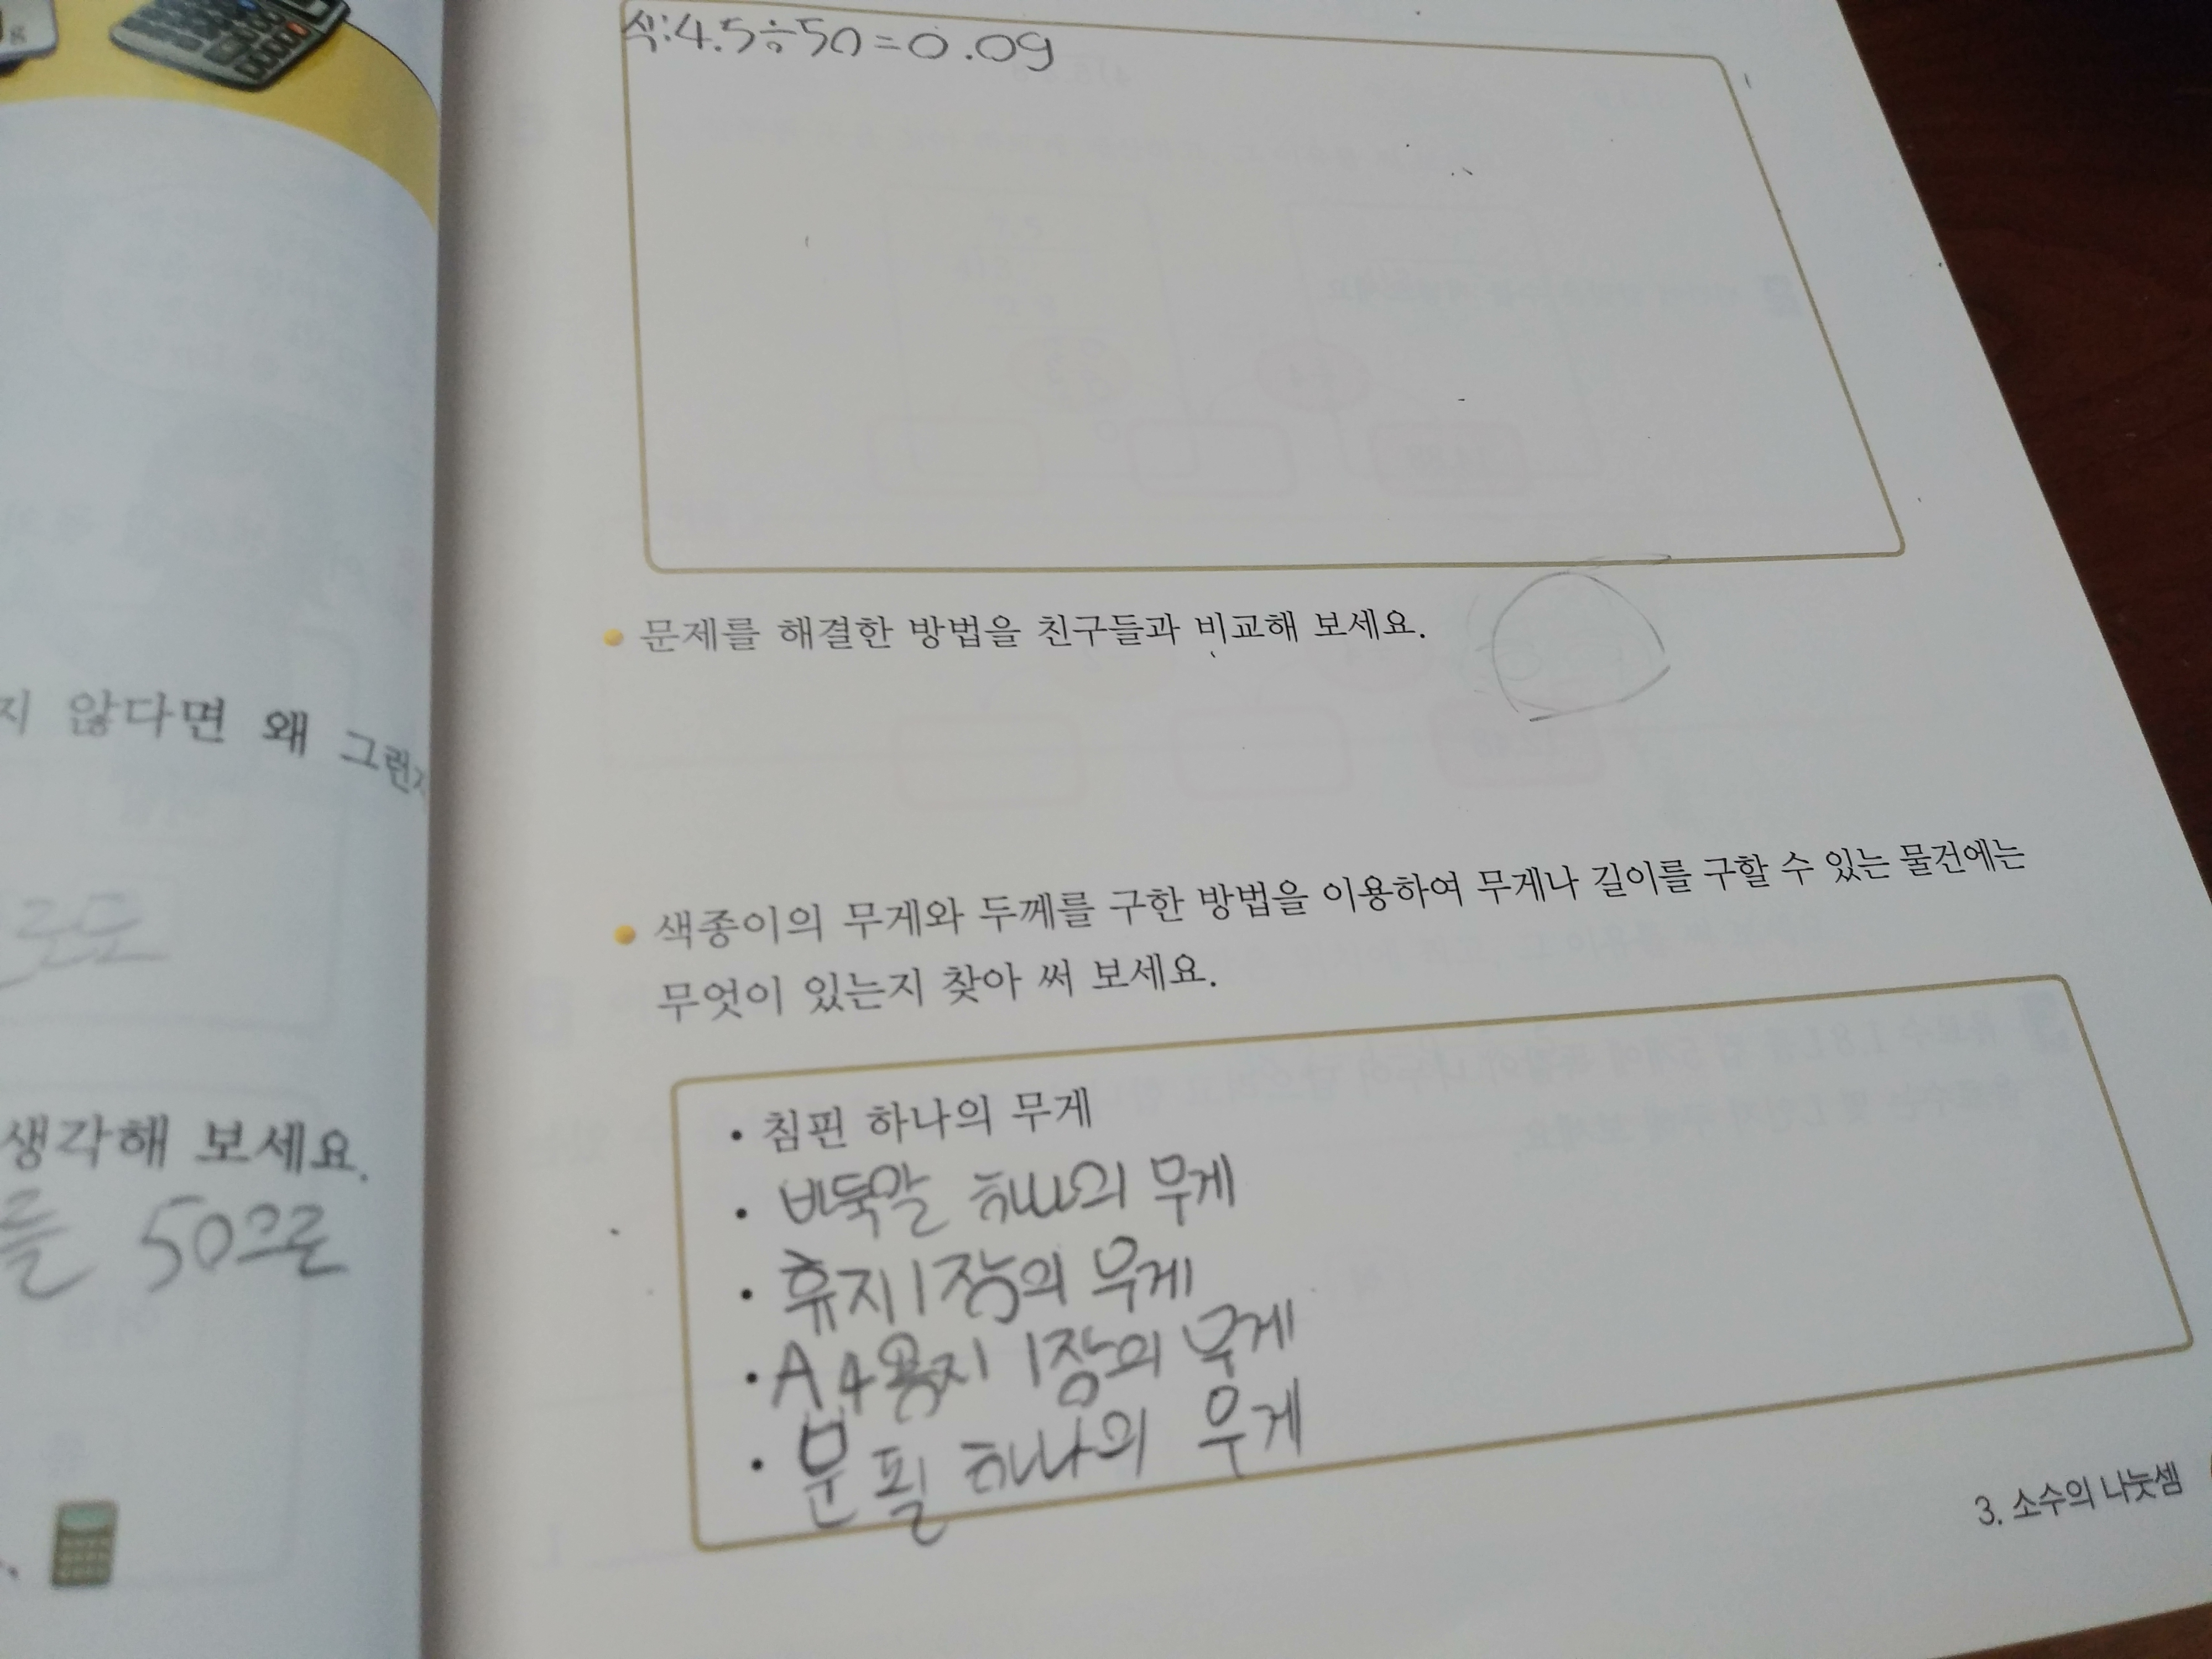 g
지 않다면 왜 그런지
로도
생각해 보세요.
를 50으로
식:4.5÷50=0.09
문제를 해결한 방법을 친구들과 비교해 보세요.
색종이의 무게와 두께를 구한 방법을 이용하여 무게나 길이를 구할 수 있는 물건에는
무엇이 있는지 찾아 써 보세요.
• 침핀 하나의 무게
• 바둑알 하나의 무게
• 휴지 1장의 무게
• A4용지 1장의 무게
• 분필 하나의 무게
3. 소수의 나눗셈